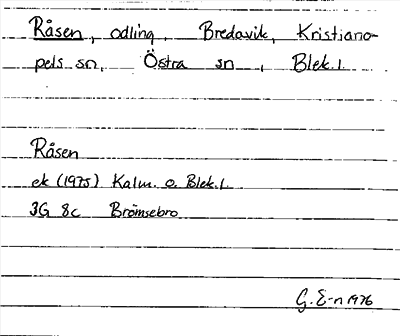 Råsen, odling, Bredavik, Kristiano-
pels sn, Östra sn, Blek. l.
Råsen
ek (1975) Kalm. o. Blek. l.
3G 8c Brömsebro
G. E-n 1976